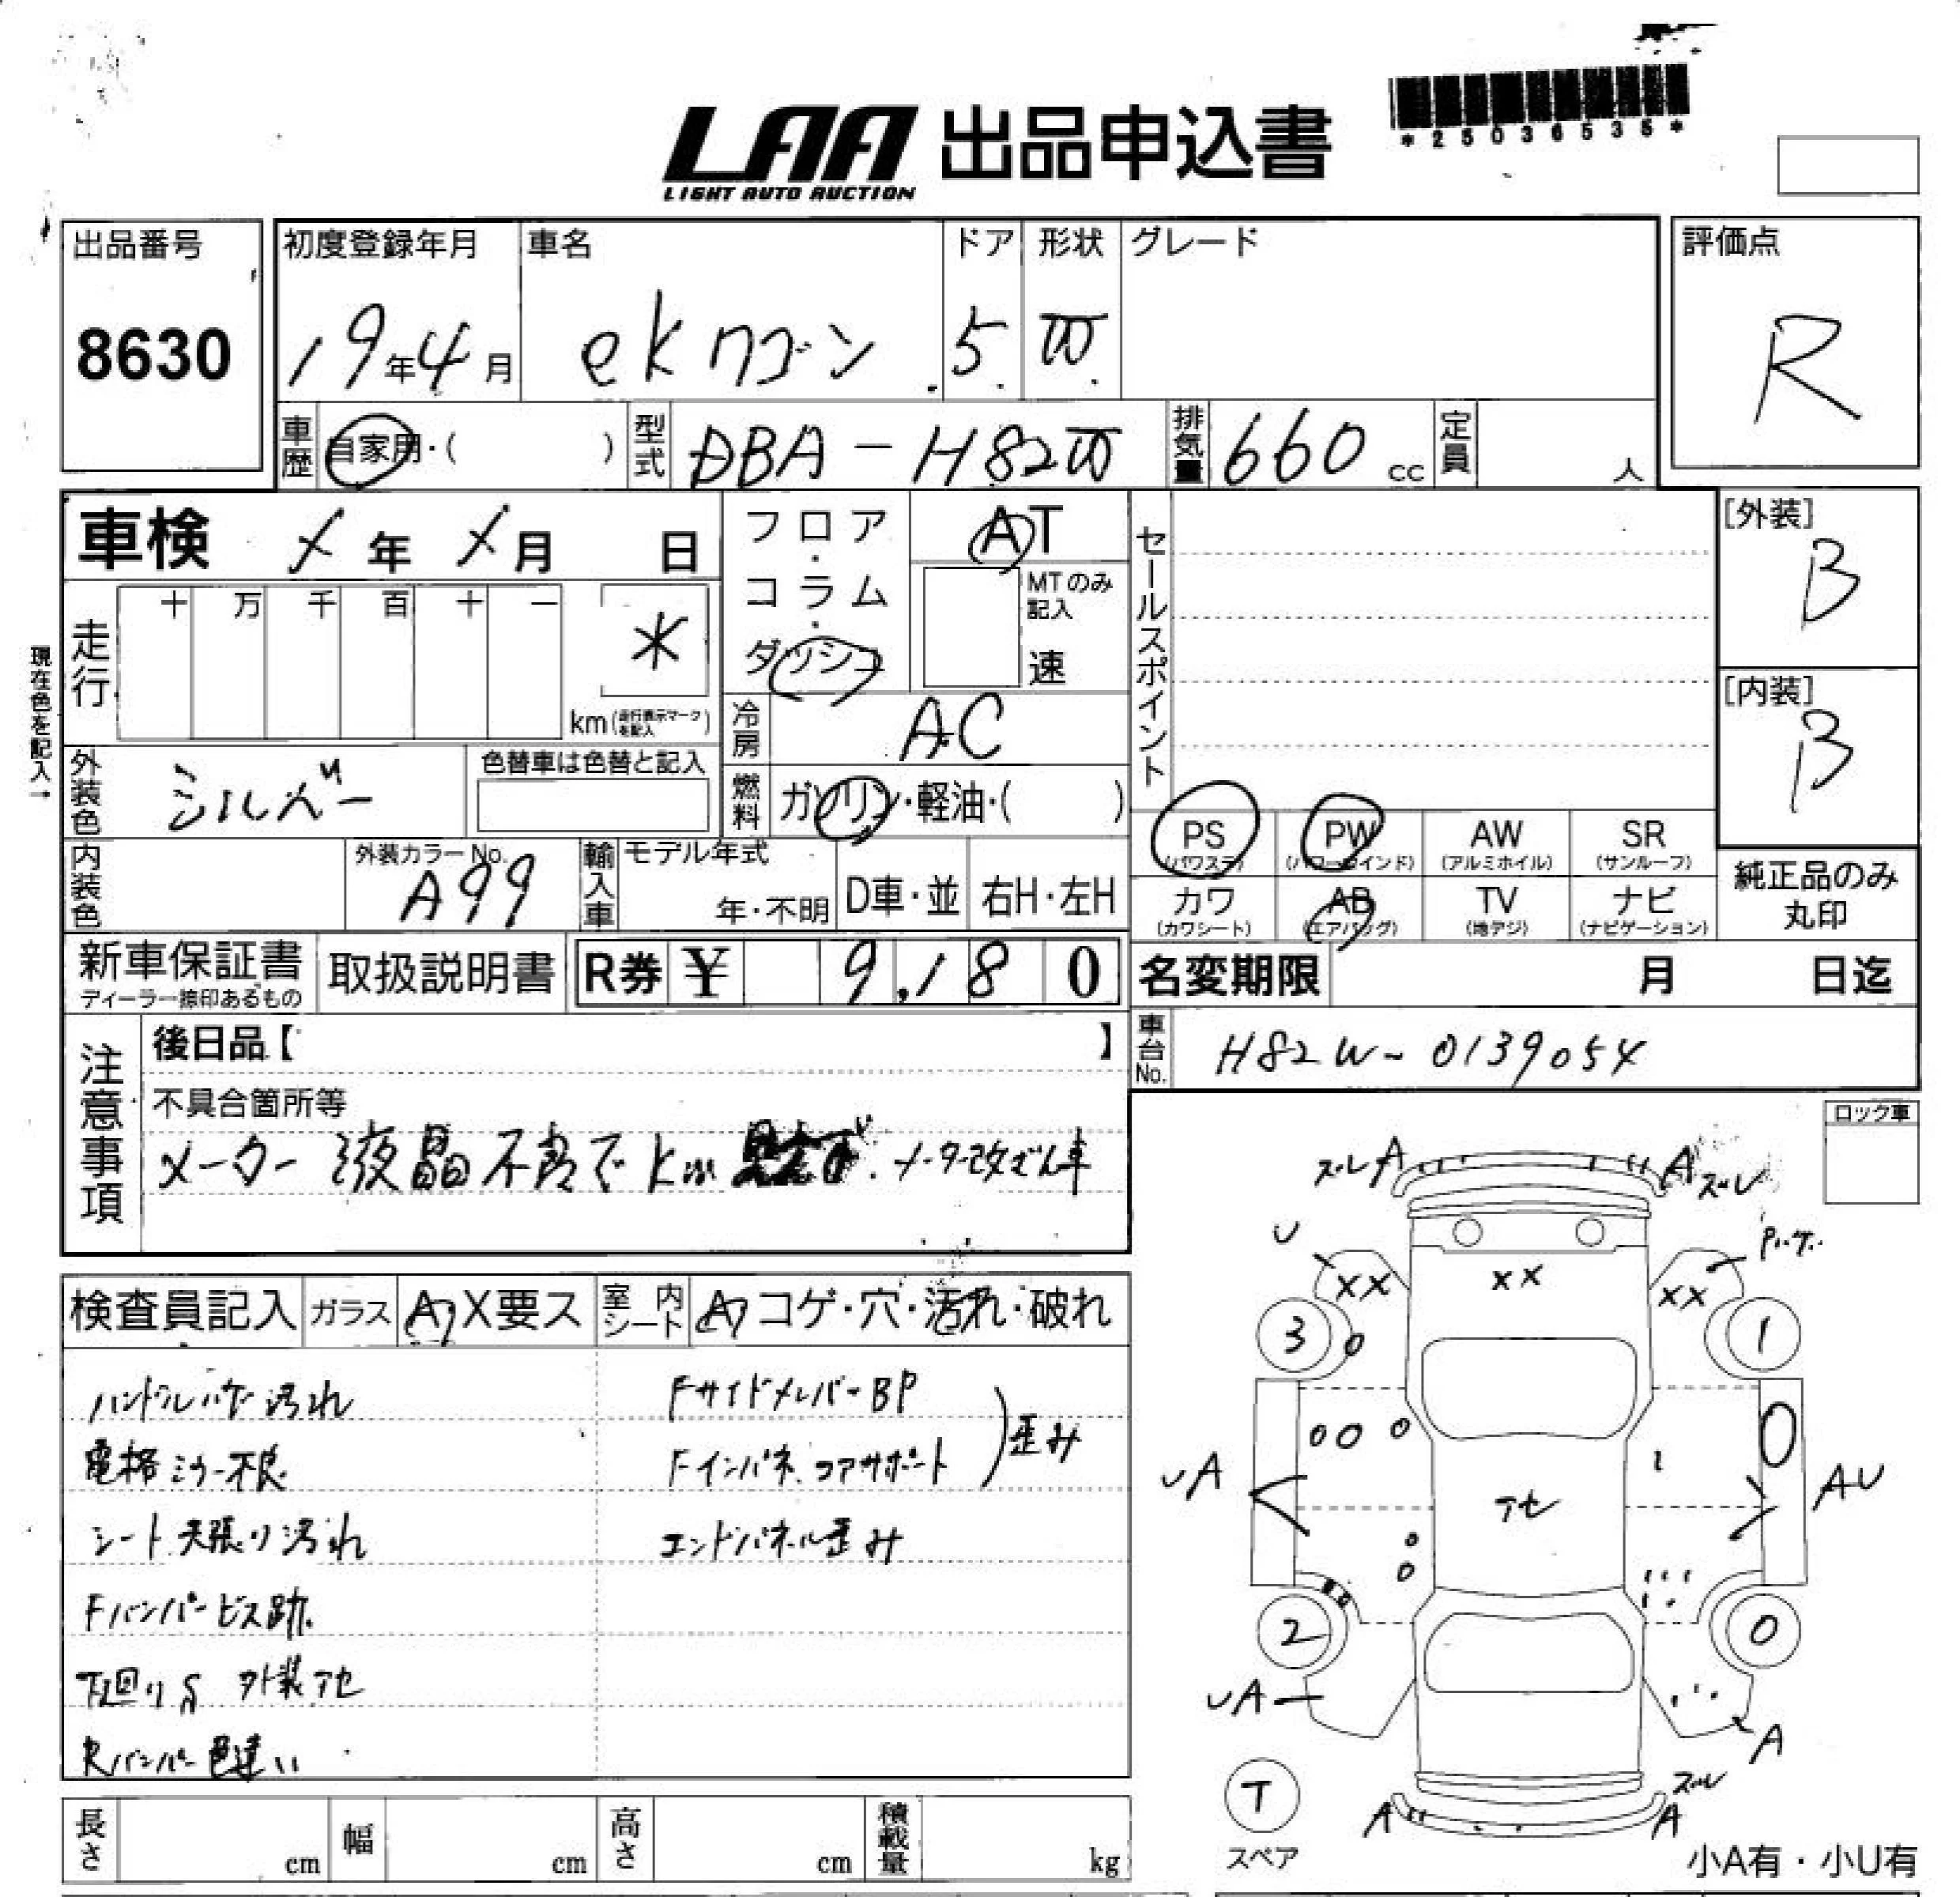 LAA 出品申込書
LIGHT AUTO AUCTION
*25036535*
出品番号
8630
初度登録年月
19年4月
車名
ekワゴン
ドア
5
形状
W
グレード
評価点
R
車歴
自家用・( )
型式
DBA-H82W
排気量
660 cc
定員
人
車検 メ年 メ月 日
フロア・コラム・ダッシュ
AT
MTのみ記入
速
セールスポイント
[外装]
B
[内装]
B
現在色を記入→
走行
十 万 千 百 十 一
*
km(走行表示マークを記入)
冷房
AC
外装色
シルバー
色替車は色替と記入
燃料
ガソリン・軽油・( )
内装色
外装カラーNo.
A99
輸入車
モデル年式
年・不明
D車・並
右H・左H
PS (パワステ)
PW (パワーウインド)
AW (アルミホイル)
SR (サンルーフ)
カワ (カワシート)
AB (エアバッグ)
TV (地デジ)
ナビ (ナビゲーション)
純正品のみ丸印
新車保証書
ディーラー捺印あるもの
取扱説明書
R券 ¥ 9,180
名変期限 月 日迄
車台No.
H82W-0139054
注意事項
後日品【 】
不具合箇所等
メーター液晶不良でkm メーター改ざん車
ロック車
検査員記入
ガラス
A・X要ス
室内シート
A・コゲ・穴・汚れ・破れ
ハンドルカバー汚れ
電格ミラー不良
シート天張り汚れ
Fバンパービス跡
下回りS 外装アセ
Rバンパー色違い
FサイドメンバーBP
Fインパネ、コアサポート
歪み
エンドパネル歪み
ズレ A
A ズレ
U
XX
XX
XX
3
1
UA
アセ
AU
2
0
UA
A
T
スペア
ズレ
A
A
長さ
cm
幅
cm
高さ
cm
積載量
kg
小A有・小U有